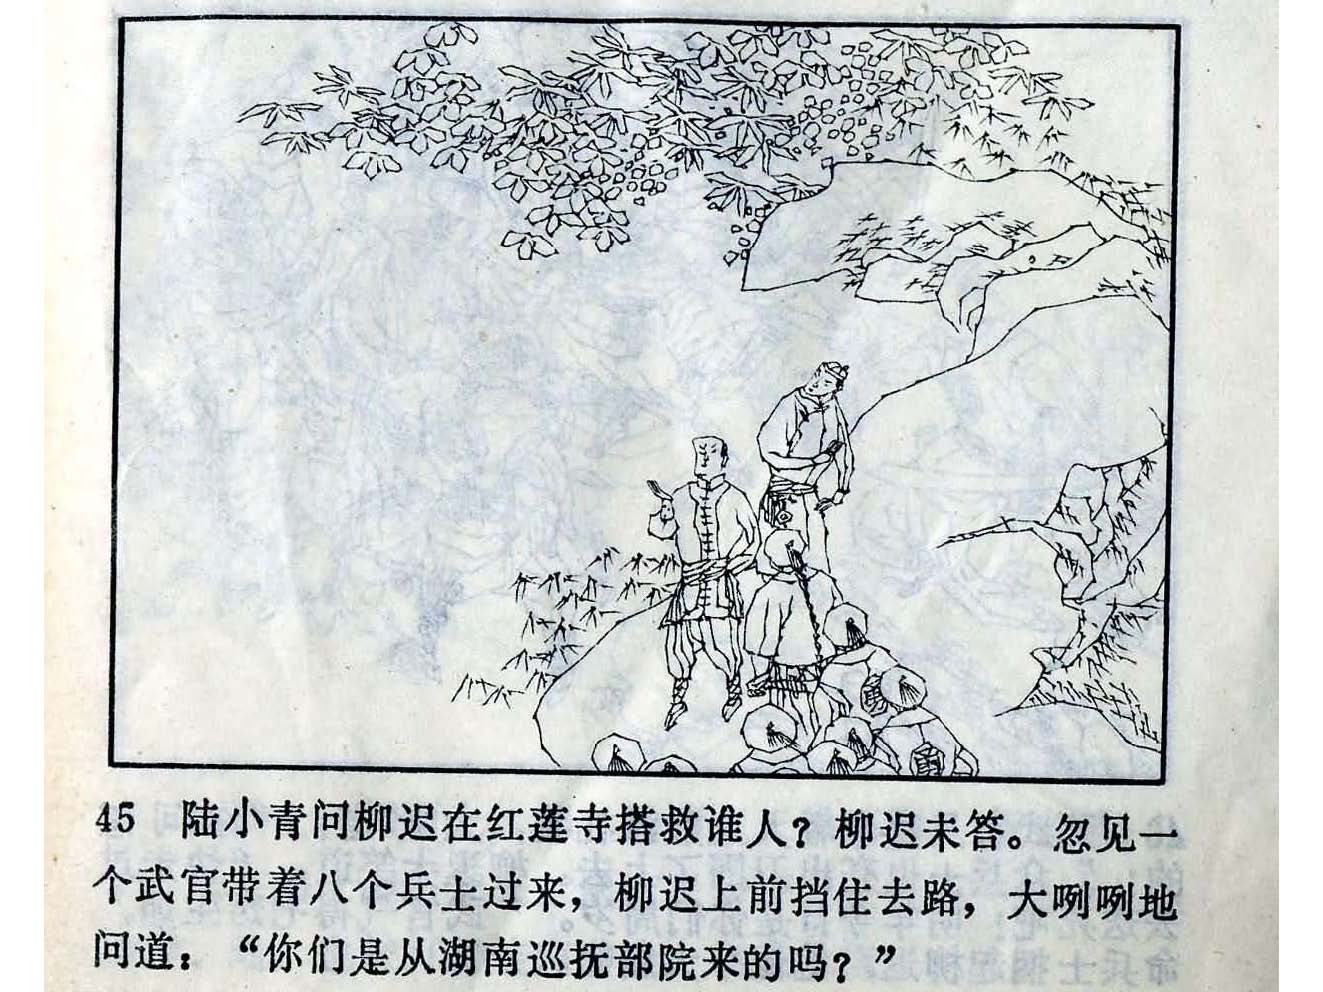 45 陆小青问柳迟在红莲寺搭救谁人？柳迟未答。忽见一
个武官带着八个兵士过来，柳迟上前挡住去路，大咧咧地
问道：“你们是从湖南巡抚部院来的吗？”